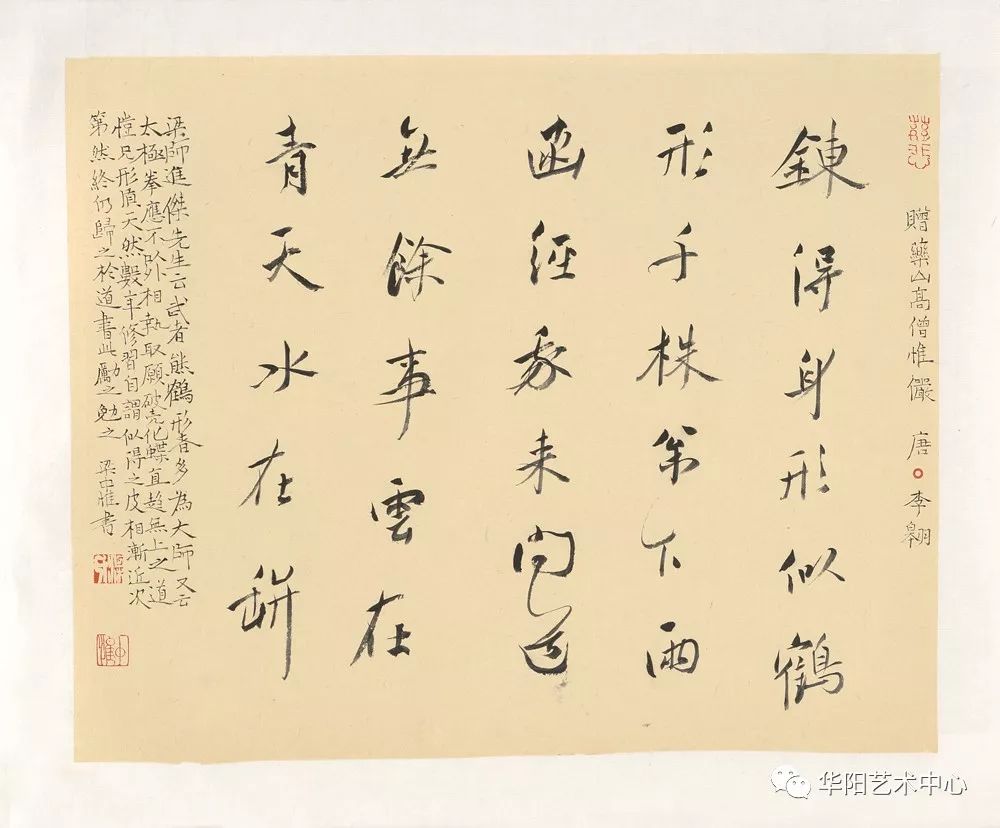 贈藥山高僧惟儼 唐 李翱
鍊得身形似鶴
形千株松下兩
函經我來問道
無餘事雲在
青天水在缾
梁師進傑先生云武者熊鶴形者多為大師又云
太極拳應不卧相執取願破壳化蝶直趨無上之道
惶兄形頂天然數年修習自謂似得之皮相漸近次
第然終仍歸之於道書此勵之勉之 梁中惟書
华阳艺术中心